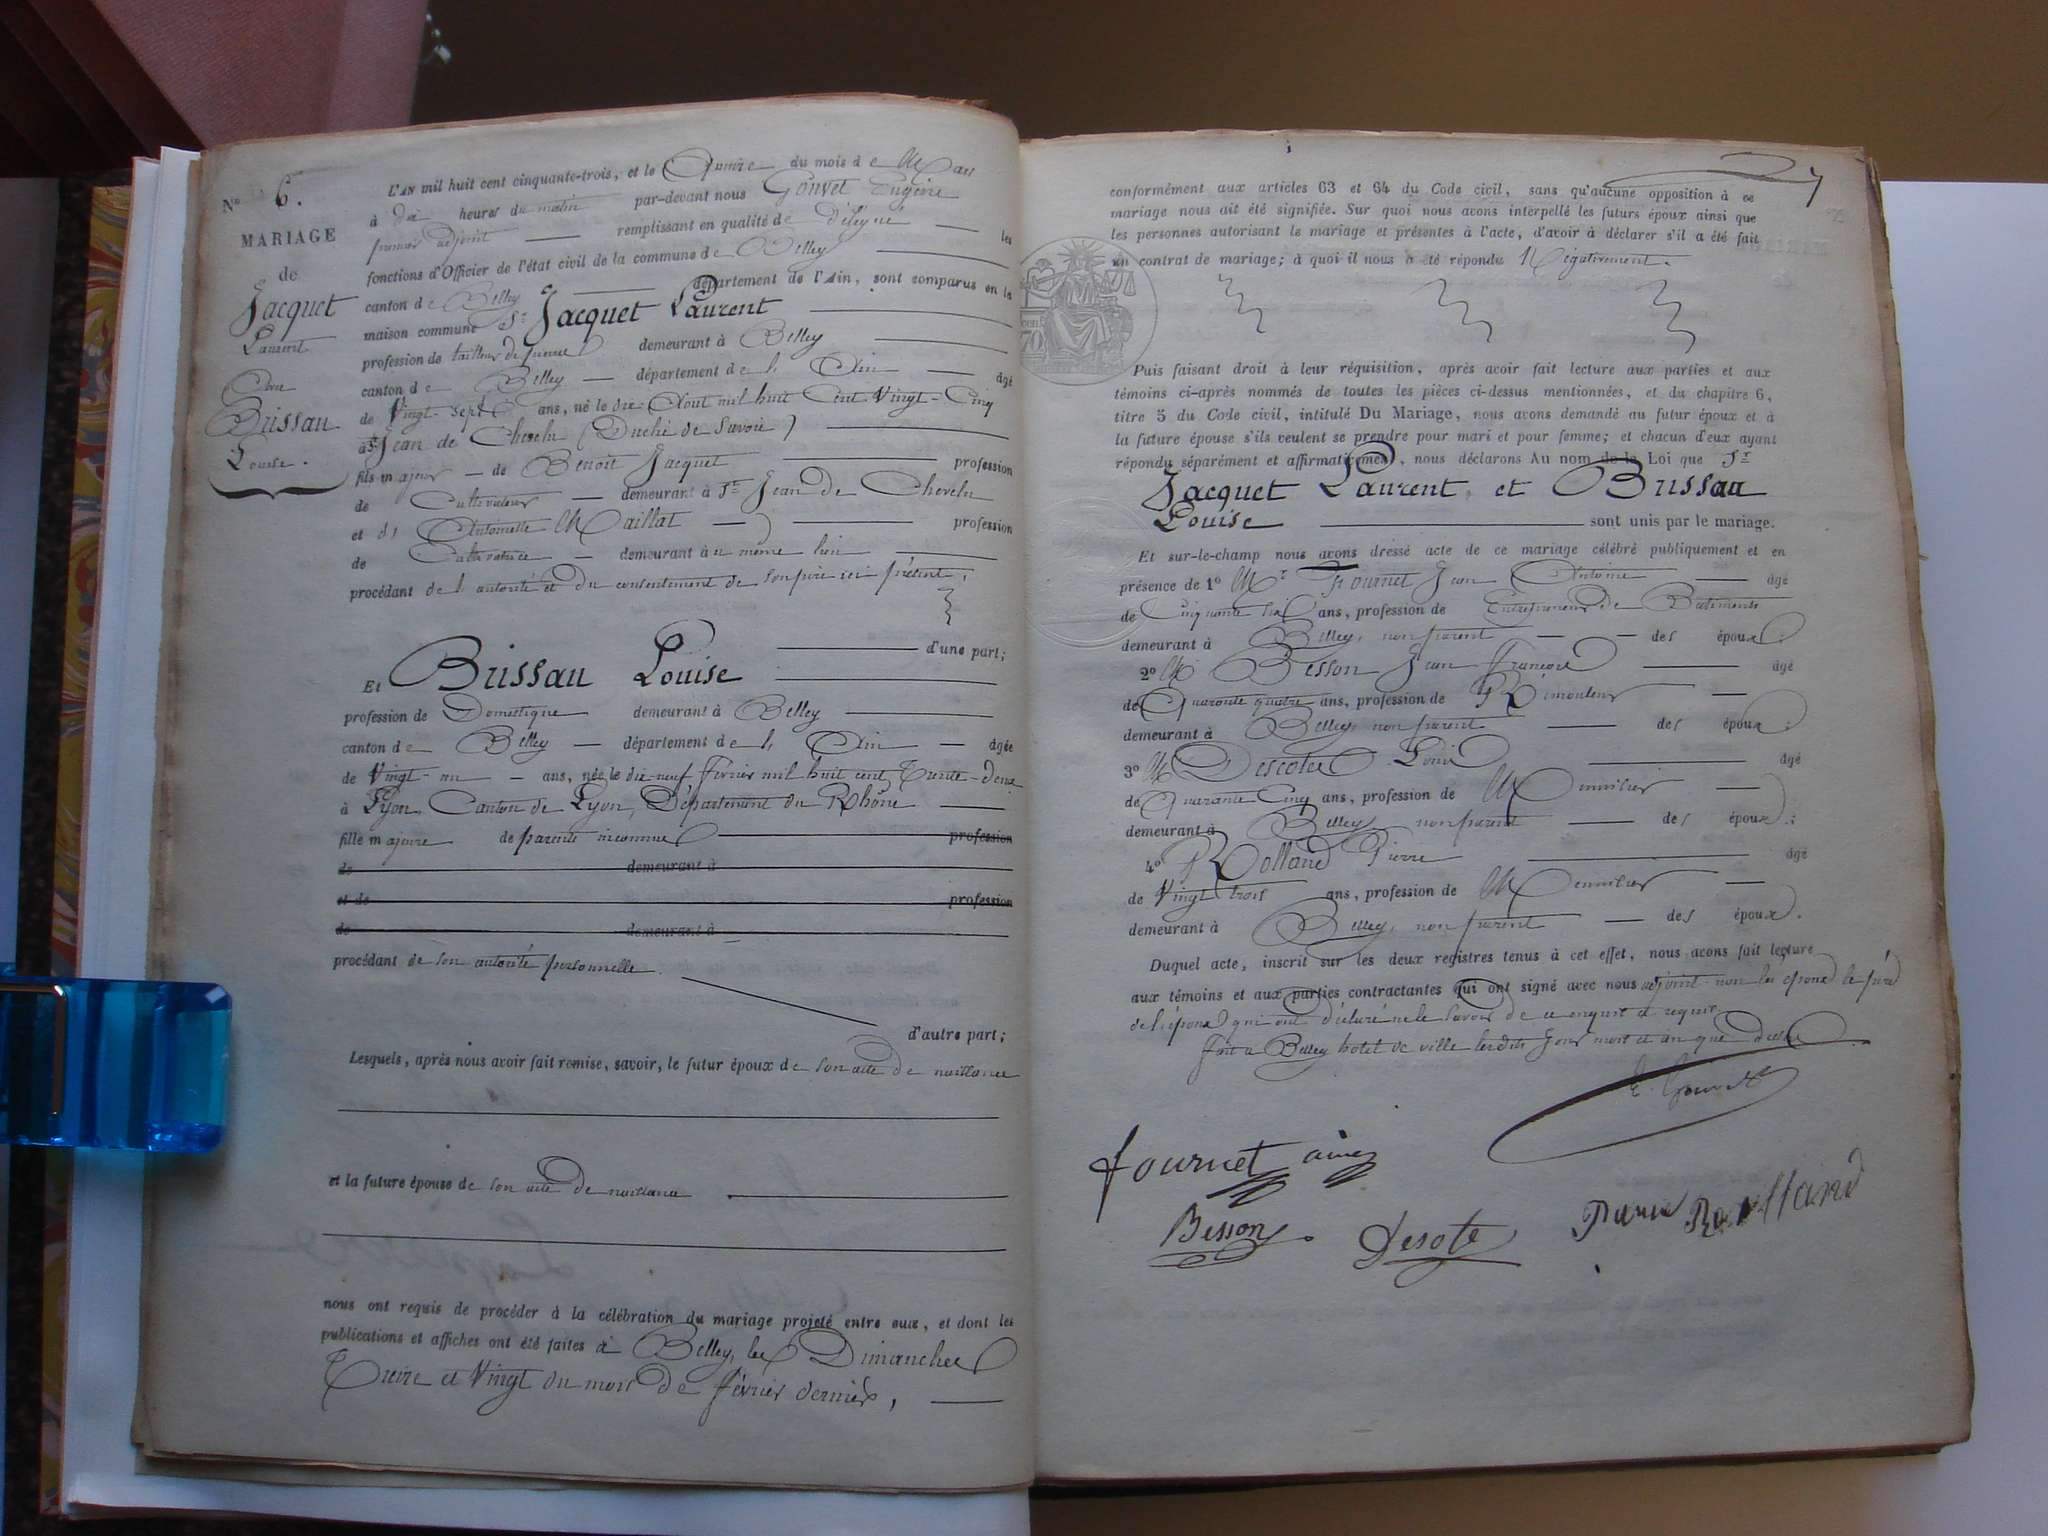 N° 6.
MARIAGE
de
Jacquet
Laurent
Avec
Brissau
Louise.
L'AN mil huit cent cinquante-trois, et le Quinze du mois de Mars
à dix heures du matin par-devant nous Gouvet Eugène
premier adjoint remplissant en qualité de délégué les
fonctions d'Officier de l'état civil de la commune de Belley
canton de Belley département de l'Ain, sont comparus en la
maison commune Sr Jacquet Laurent
profession de tailleur de pierres demeurant à Belley
canton de Belley département de l'Ain âgé
de Vingt-sept ans, né le dix Aout mil huit Cent Vingt-Cinq
à St Jean de Chevelu (Duché de Savoie)
fils majeur de Benoit Jacquet profession
de Cultivateur demeurant à St Jean de Chevelu
et d' Antoinette Maillat profession
de Cultivatrice demeurant au même lieu
procédant de l'autorité et du consentement de son père ici présent,
d'une part;
Et Brissau Louise
profession de Domestique demeurant à Belley
canton de Belley département de l'Ain âgée
de Vingt-un ans, née le dix-neuf février mil huit cent Trente-deux
à Lyon, Canton de Lyon, Département du Rhône
fille majeure de parents inconnus profession
de demeurant à
et de profession
de demeurant à
procédant de son autorité personnelle.
d'autre part;
Lesquels, après nous avoir fait remise, savoir, le futur époux de son acte de naissance
et la future épouse de son acte de naissance
nous ont requis de procéder à la célébration du mariage projeté entre eux, et dont les
publications et affiches ont été faites à Belley, les Dimanches
Treize et Vingt du mois de février dernier,
7
conformément aux articles 63 et 64 du Code civil, sans qu'aucune opposition à ce
mariage nous ait été signifiée. Sur quoi nous avons interpellé les futurs époux ainsi que
les personnes autorisant le mariage et présentes à l'acte, d'avoir à déclarer s'il a été fait
un contrat de mariage; à quoi il nous a été répondu Négativement.
Puis faisant droit à leur réquisition, après avoir fait lecture aux parties et aux
témoins ci-après nommés de toutes les pièces ci-dessus mentionnées, et du chapitre 6,
titre 5 du Code civil, intitulé Du Mariage, nous avons demandé au futur époux et à
la future épouse s'ils veulent se prendre pour mari et pour femme; et chacun d'eux ayant
répondu séparément et affirmativement, nous déclarons Au nom de la Loi que Sr
Jacquet Laurent, et Brissau
Louise sont unis par le mariage.
Et sur-le-champ nous avons dressé acte de ce mariage célébré publiquement et en
présence de 1° Mr Fournet Jean Antoine âgé
de Cinquante ans, profession de Entrepreneur de Batiments
demeurant à Belley, non parent des époux;
2° M Besson Jean François âgé
de Quarante quatre ans, profession de Rémouleur
demeurant à Belley, non parent des époux;
3° M Descotes Louis âgé
de Quarante Cinq ans, profession de Menuisier
demeurant à Belley, non parent des époux;
4° Rolland Pierre âgé
de Vingt trois ans, profession de Menuisier
demeurant à Belley, non parent des époux.
Duquel acte, inscrit sur les deux registres tenus à cet effet, nous avons fait lecture
aux témoins et aux parties contractantes qui ont signé avec nous adjoint non les époux le père
de l'époux qui ont déclaré ne le savoir de ce enquis et requis
fait à Belley hotel de ville lesdits jour mois et an que dessus
E. Gouvet
fournet ainé
Besson
Descote
Pierre Rolland